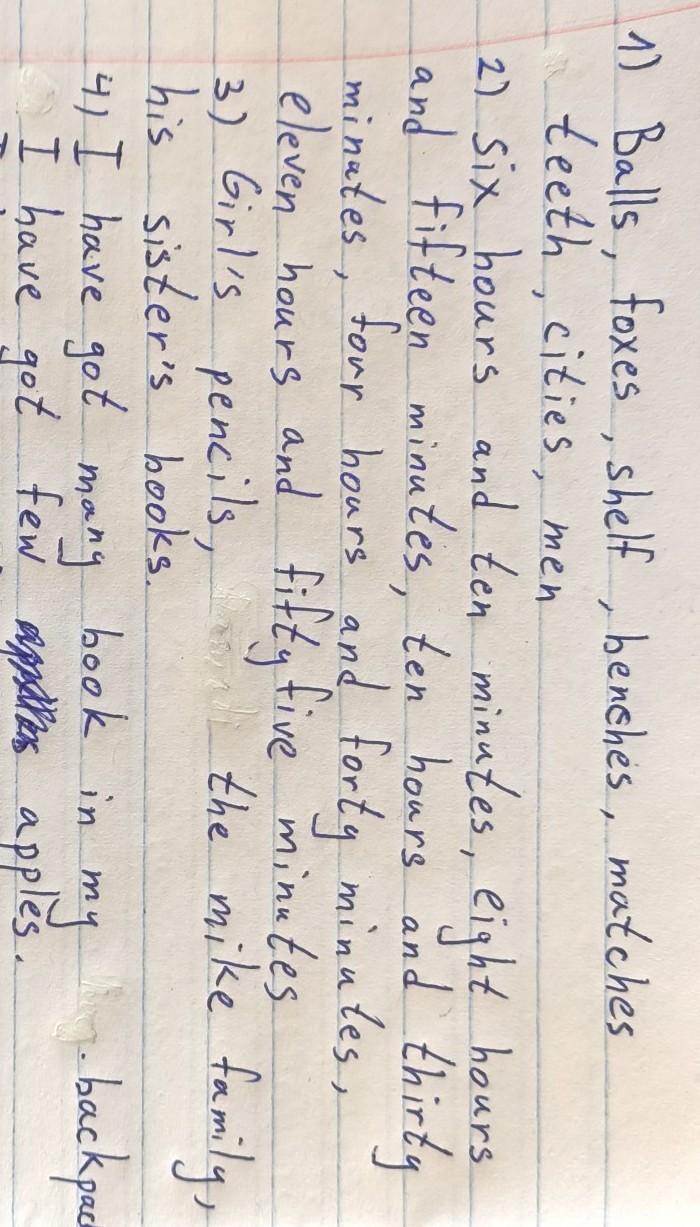 1) Balls, foxes, shelf, benches, matches
teeth, cities, men
2) Six hours and ten minutes, eight hours
and fifteen minutes, ten hours and thirty
minutes, four hours and forty minutes,
eleven hours and fifty five minutes
3) Girl's pencils, the mike family,
his sister's books.
4) I have got many book in my . backpac
I have got few apples.